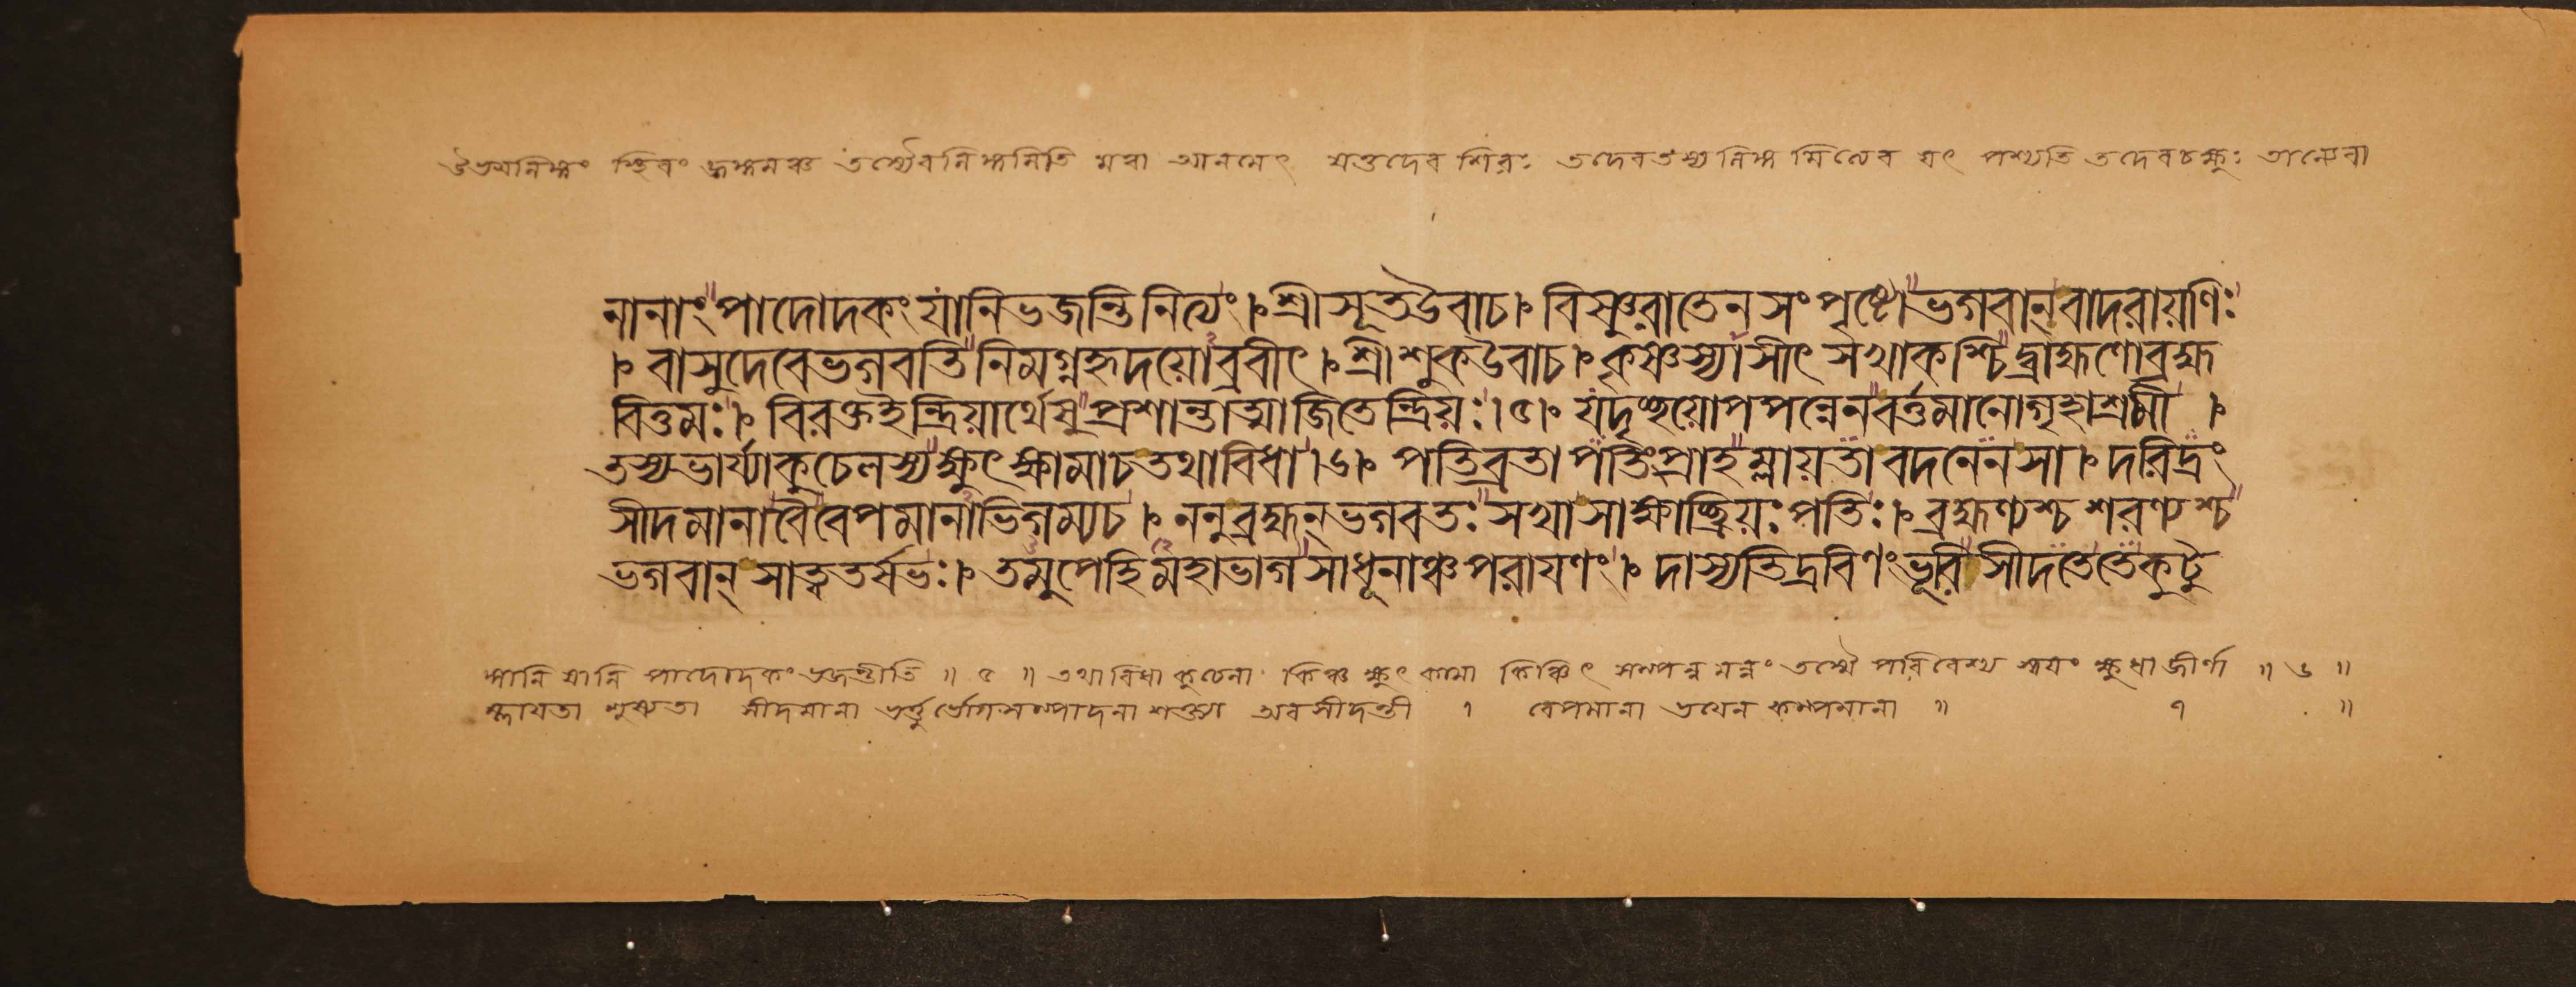 উভয়লিঙ্গং স্থিরং জঙ্গমঞ্চ তস্যৈব লিঙ্গমিতি মত্বা আনমেৎ যত্তদেব শিরঃ তদেব তস্য লিঙ্গমিত্যেব যৎ পশ্যতি তদেব চক্ষুঃ তান্যেবা
নানাং পাদোদকং যানি ভজন্তি নিত্যং।৪। শ্রীসূতউবাচ।৪। বিষ্ণুরাতেন সংপৃষ্টো ভগবান্ বাদরায়ণিঃ
।৪। বাসুদেবে ভগবতি নিমগ্নহৃদয়োব্রবীৎ।৪। শ্রীশুকউবাচ।৪। কৃষ্ণস্যাসীৎ সখা কশ্চিদ্ব্রাহ্মণো ব্রহ্ম
বিত্তমঃ।৪। বিরক্তইন্দ্রিয়ার্থেষু প্রশান্তাত্মা জিতেন্দ্রিয়ঃ।৫।৪। যদৃচ্ছয়োপপন্নেন বর্ত্তমানো গৃহাশ্রমী।৪।
তস্য ভার্য্যা কুচেলস্য ক্ষুৎক্ষামা চ তথাবিধা।৬।৪। পতিব্রতা পতিং প্রাহ ম্লায়তা বদনেন সা।৪। দরিদ্রং
সীদমানা বৈ বেপমানাভিগম্য চ।৪। ননু ব্রহ্মন্ ভগবতঃ সখা সাক্ষাচ্ছ্রিয়ঃ পতিঃ।৪। ব্রহ্মণ্যশ্চ শরণ্যশ্চ
ভগবান্ সাত্বতর্ষভঃ।৪। তমুপেহি মহাভাগ সাধূনাঞ্চ পরায়ণং।৪। দাস্যতি দ্রবিণং ভূরি সীদতে তে কুটু
ঙ্গানি যানি পাদোদকং ভজন্তীতি ॥ ৫ ॥ তথাবিধা কুচেলা কিঞ্চ ক্ষুৎক্ষামা কিঞ্চিৎ সম্পন্নমন্নং তস্মৈ পরিবেশ্য স্বয়ং ক্ষুধা জীর্ণা ॥ ৬ ॥
ম্লায়তা শুষ্যতা সীদমানা ভর্ত্তুর্ভোগসম্পাদনাশক্ত্যা অবসীদন্তী । বেপমানা ভয়েন কম্পমানা ॥ ৭ ॥